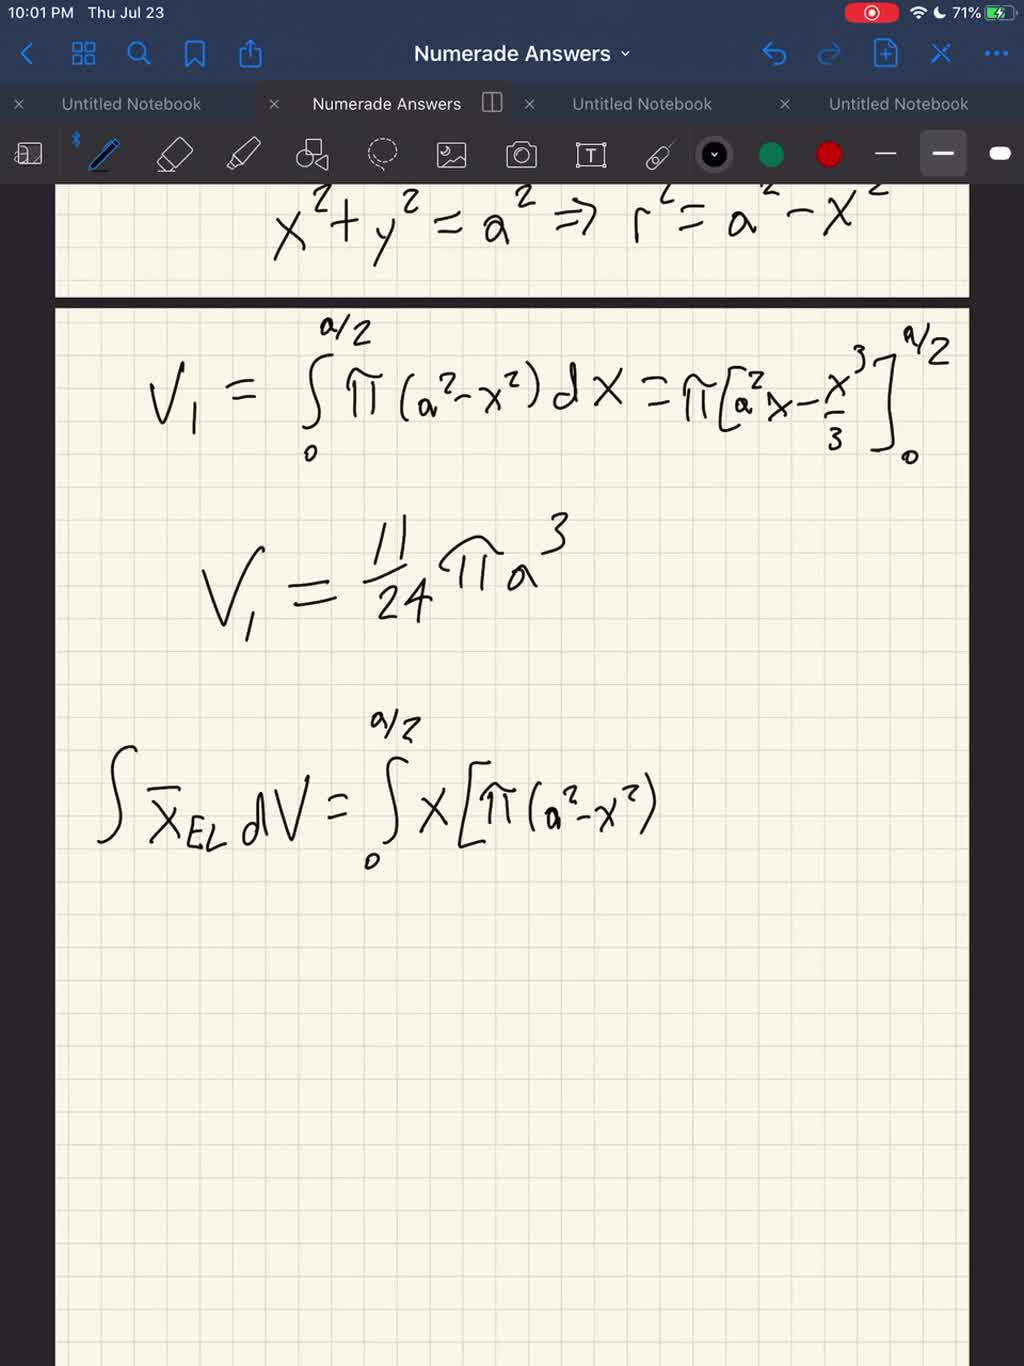 10:01 PM Thu Jul 23 71%
Numerade Answers
Untitled Notebook Numerade Answers Untitled Notebook Untitled Notebook
x² + y² = a² ⇒ r² = a² - x²
V₁ = ∫₀^{a/2} π(a² - x²) dx = π[a²x - x³/3]₀^{a/2}
V₁ = 11/24 πa³
∫ x̄_EL dV = ∫₀^{a/2} x[π(a² - x²)